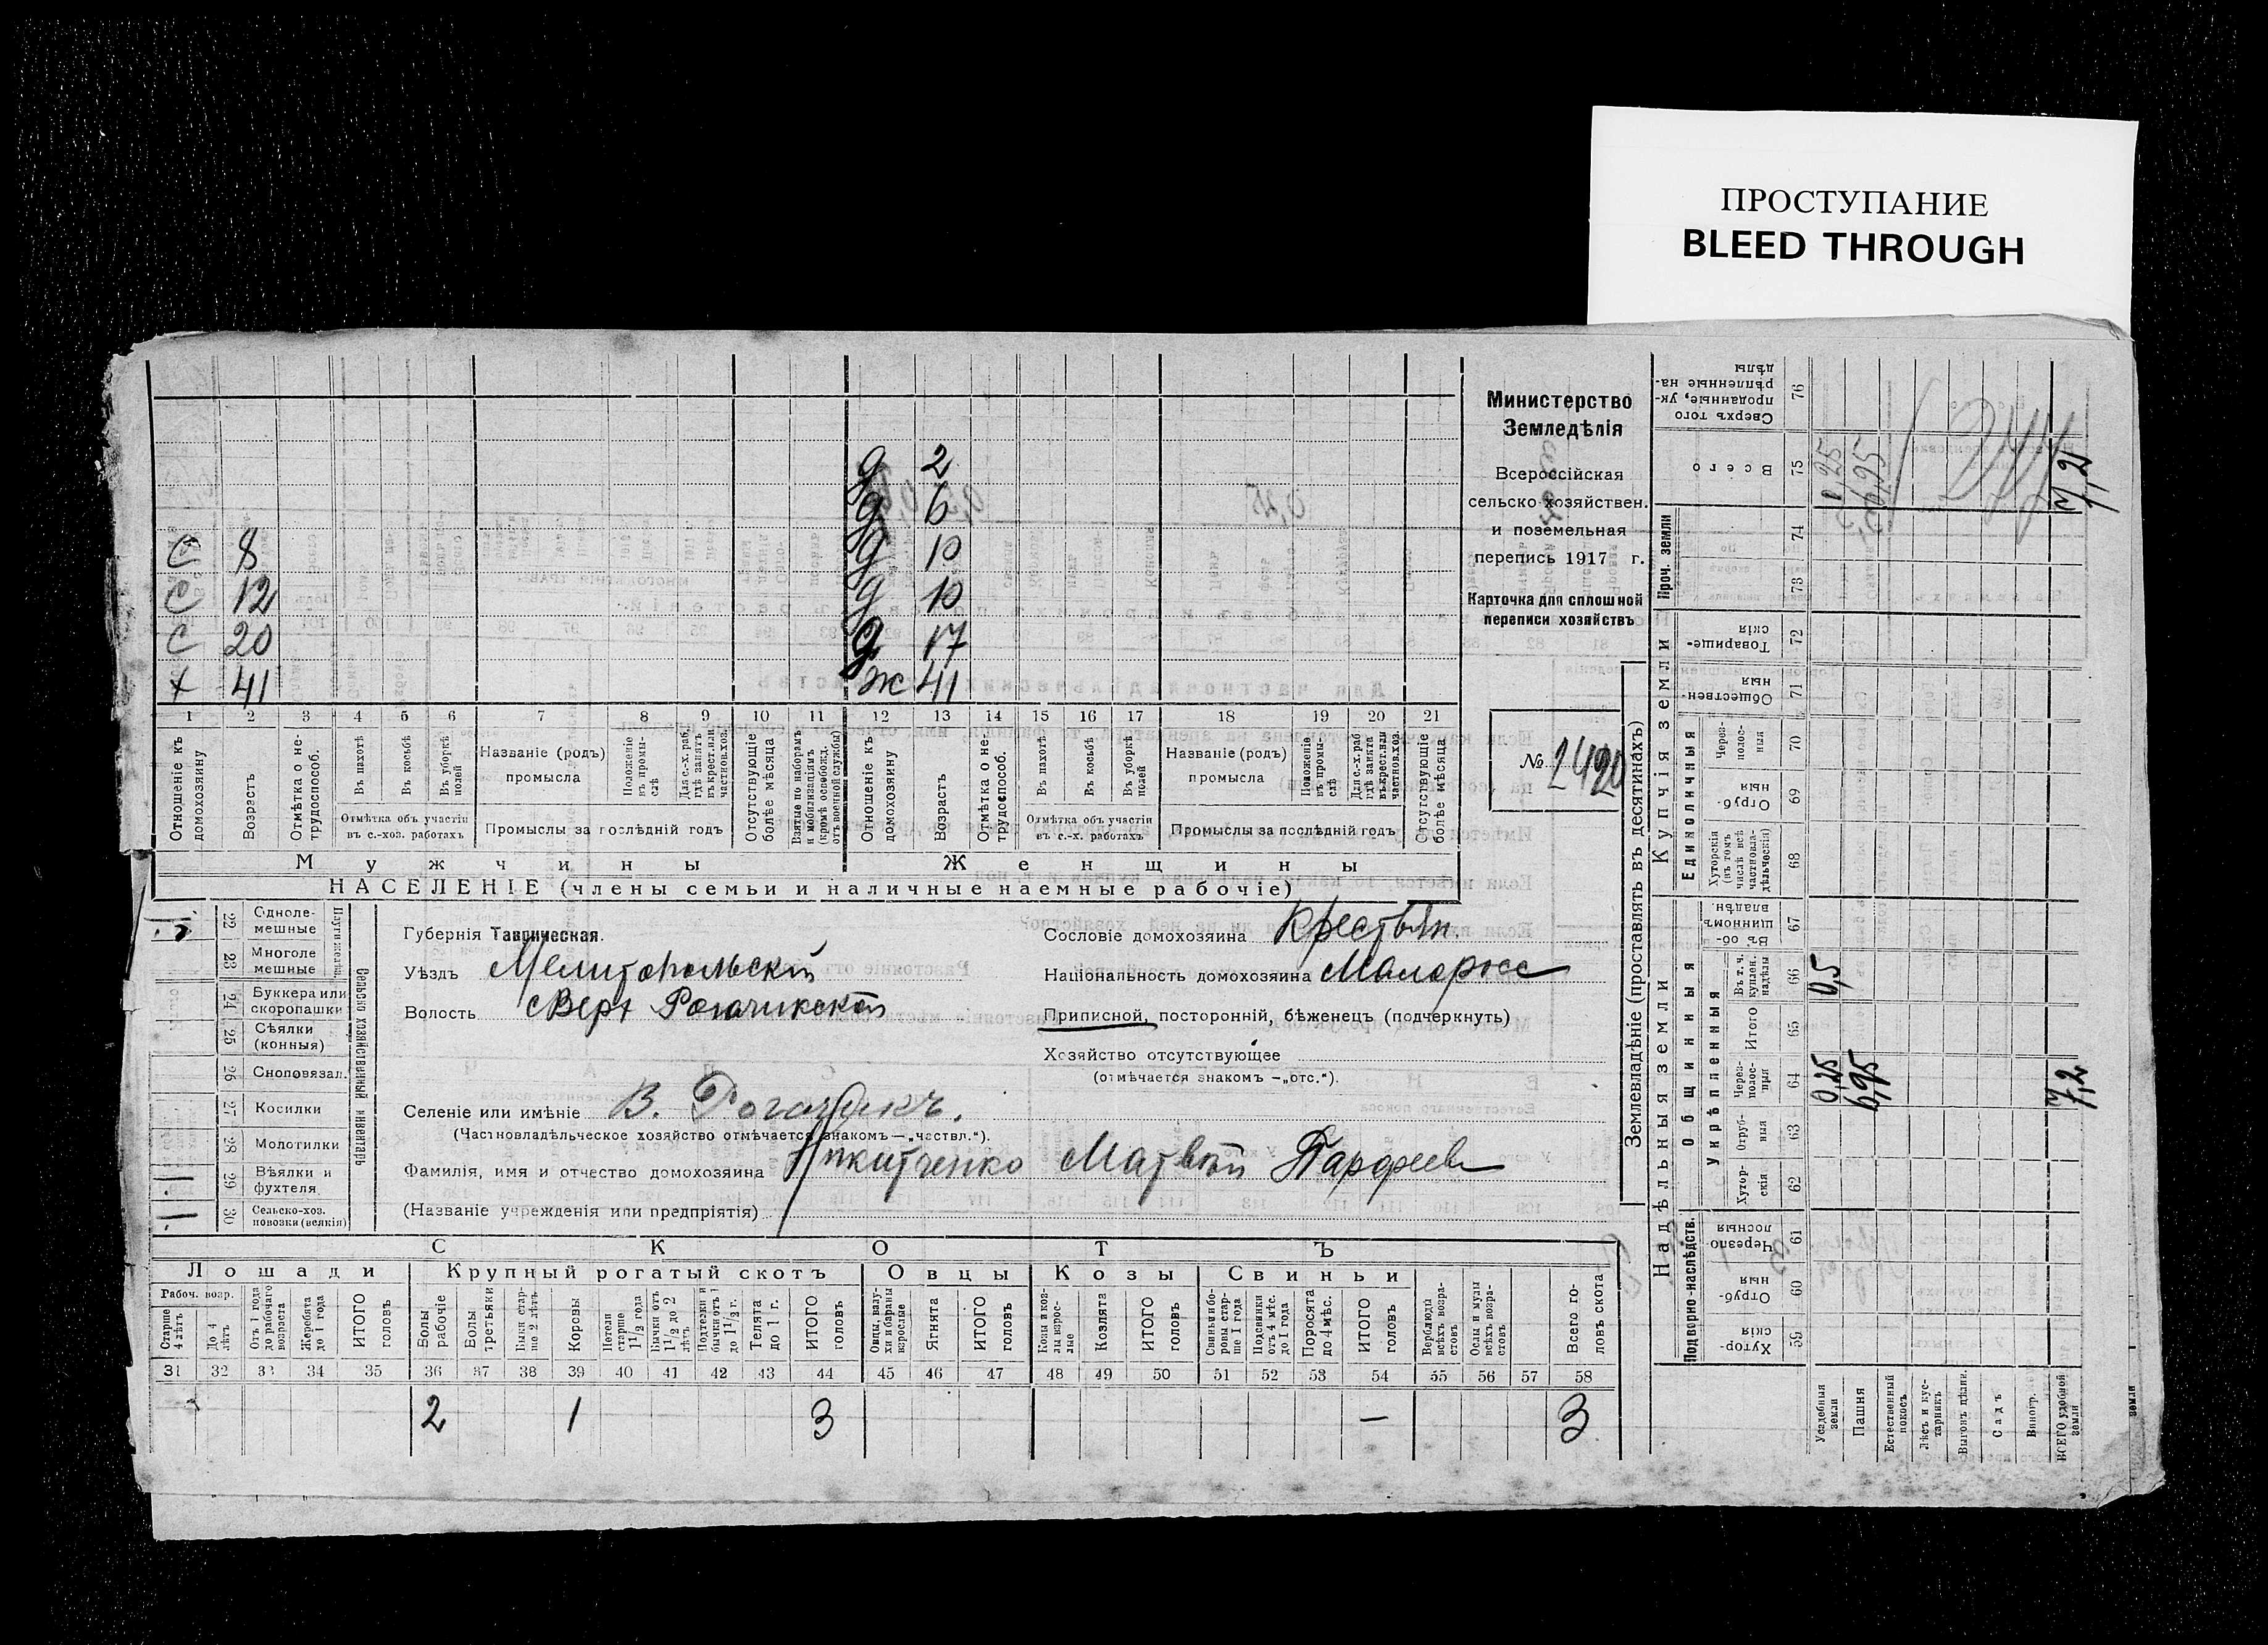 ПРОСТУПАНИЕ
BLEED THROUGH
Министерство
Земледѣлія
Всероссійская
сельско-хозяйствен.
и поземельная
перепись 1917 г.
Карточка для сплошной
переписи хозяйствъ
№ 2420
д 2
д 6
с 8 д 10
с 12 д 10
с 20 д 17
х 41 ж 41
1 2 3 4 5 6 7 8 9 10 11 12 13 14 15 16 17 18 19 20 21
Отношеніе къ домохозяину
Возрастъ
Отмѣтка о не-трудоспособ.
Въ пахотѣ
Въ косьбѣ
Въ уборкѣ полей
Отмѣтка объ участіи въ с.-хоз. работахъ
Названіе (родъ) промысла
Положеніе въ промы-слѣ
Для с.-х. раб. гдѣ занятъ въ крест. или частнов. хоз.
Промыслы за послѣдній годъ
Отсутствующіе болѣе мѣсяца
Взятые по наборамъ и мобилизаціямъ (кромѣ освобожд. отъ военной службы)
Отношеніе къ домохозяину
Возрастъ
Отмѣтка о не-трудоспособ.
Въ пахотѣ
Въ косьбѣ
Въ уборкѣ полей
Отмѣтка объ участіи въ с.-х. работахъ
Названіе (родъ) промысла
Положеніе въ промы-слѣ
Для с.-х. раб. гдѣ занята въ крест. или частнов. хоз.
Промыслы за послѣдній годъ
Отсутствующіе болѣе мѣсяца
Мужчины Женщины
НАСЕЛЕНІЕ (члены семьи и наличные наемные рабочіе)
Сельско хозяйственный инвентарь
22 Одноле-мешные
23 Многоле мешные
24 Буккера или скоропашки
25 Сѣялки (конныя)
26 Сноповязал.
27 Косилки
28 Молотилки
29 Вѣялки и фухтеля 1
30 Сельско-хоз. повозки (всякія) 1
Губернія Таврическая.
Уѣздъ Мелитопольскій
Волость Верх Рогачикской
Селеніе или имѣніе В. Рогачикъ.
(Частновладѣльческое хозяйство отмѣчается знакомъ — „частвл.“).
Фамилія, имя и отчество домохозяина Никитченко Матвѣй Парфеев
(Названіе учрежденія или предпріятія)
Сословіе домохозяина Крестьян.
Національность домохозяина Малоросс
Приписной, посторонній, бѣженецъ (подчеркнуть)
Хозяйство отсутствующее
(отмѣчается знакомъ — „отс.“).
СКОТЪ
Лошади Крупный рогатый скотъ Овцы Козы Свиньи
Рабоч. возр.
Старше 4 лѣтъ
До 4 лѣтъ
Отъ 1 года до рабочаго возраста
Жеребята до 1 года
ИТОГО головъ
Волы рабочіе
Волы третьяки
Быки стар-ше 2 лѣтъ
Коровы
Нетели старше 1 1/2 года
Бычки отъ 1 1/2 до 2 лѣтъ
Подтелки и бычки отъ 1 до 1 1/2 г.
Телята до 1 г.
ИТОГО головъ
Овцы, валу-хи и бараны взрослые
Ягнята
ИТОГО головъ
Козы и коз-лы взрос-лые
Козлята
ИТОГО головъ
Свиньи и бо-ровы стар-ше 1 года
Подсвинки отъ 4 мѣс. до 1 года
Поросята до 4 мѣс.
ИТОГО головъ
Верблюды всѣхъ возра-стовъ
Ослы и мулы всѣхъ возра-стовъ
Всего го-ловъ скота
31 32 33 34 35 36 37 38 39 40 41 42 43 44 45 46 47 48 49 50 51 52 53 54 55 56 57 58
2 1 3 — 3
Землевладѣніе (проставлять въ десятинахъ)
Надѣльныя земли Купчія земли Проч. земли
Подворно-наслѣдств. Общинныя Единоличныя
Укрѣпленныя
Хутор-скія 59
Отруб-ныя 60
Черезпо лосныя 61
Хутор-скія 62
Отруб-ныя 63
Через-полос-ныя 64
Итого 65
Въ т. ч. куплен. надѣлы 66
Въ об-щинномъ владѣн. 67
Хуторскія (въ томъ числѣ всѣ частновла-дѣльческія) 68
Отруб-ныя 69
Через-полос-ныя 70
Обществен-ныя 71
Товарище-скія 72
73
74
Всего 75
Сверхъ того проданные, ук-рѣпленные на-дѣлы 76
Усадебная земли 0,25 0,5 0,25
Пашня 6,95 6,95
Естественный покосъ
Лѣсъ и кус-тарникъ
Выгонъ цѣлин.
Садъ
Виногр.
ВСЕГО удобной земли 7,2 7,2
земли